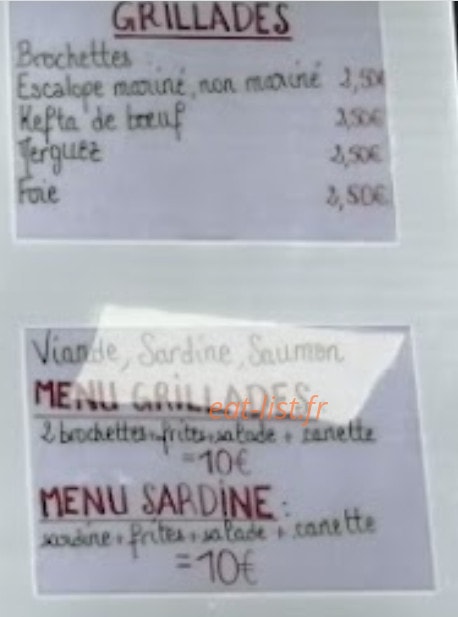 GRILLADES
Brochettes :
Escalope mariné, non mariné 2,50€
Kefta de bœuf 2,50€
Merguez 2,50€
Foie 2,50€
Viande, Sardine, Saumon
MENU GRILLADES
eat-list.fr
2 brochettes+frites+salade + canette
=10€
MENU SARDINE :
sardine+frites+salade + canette
=10€